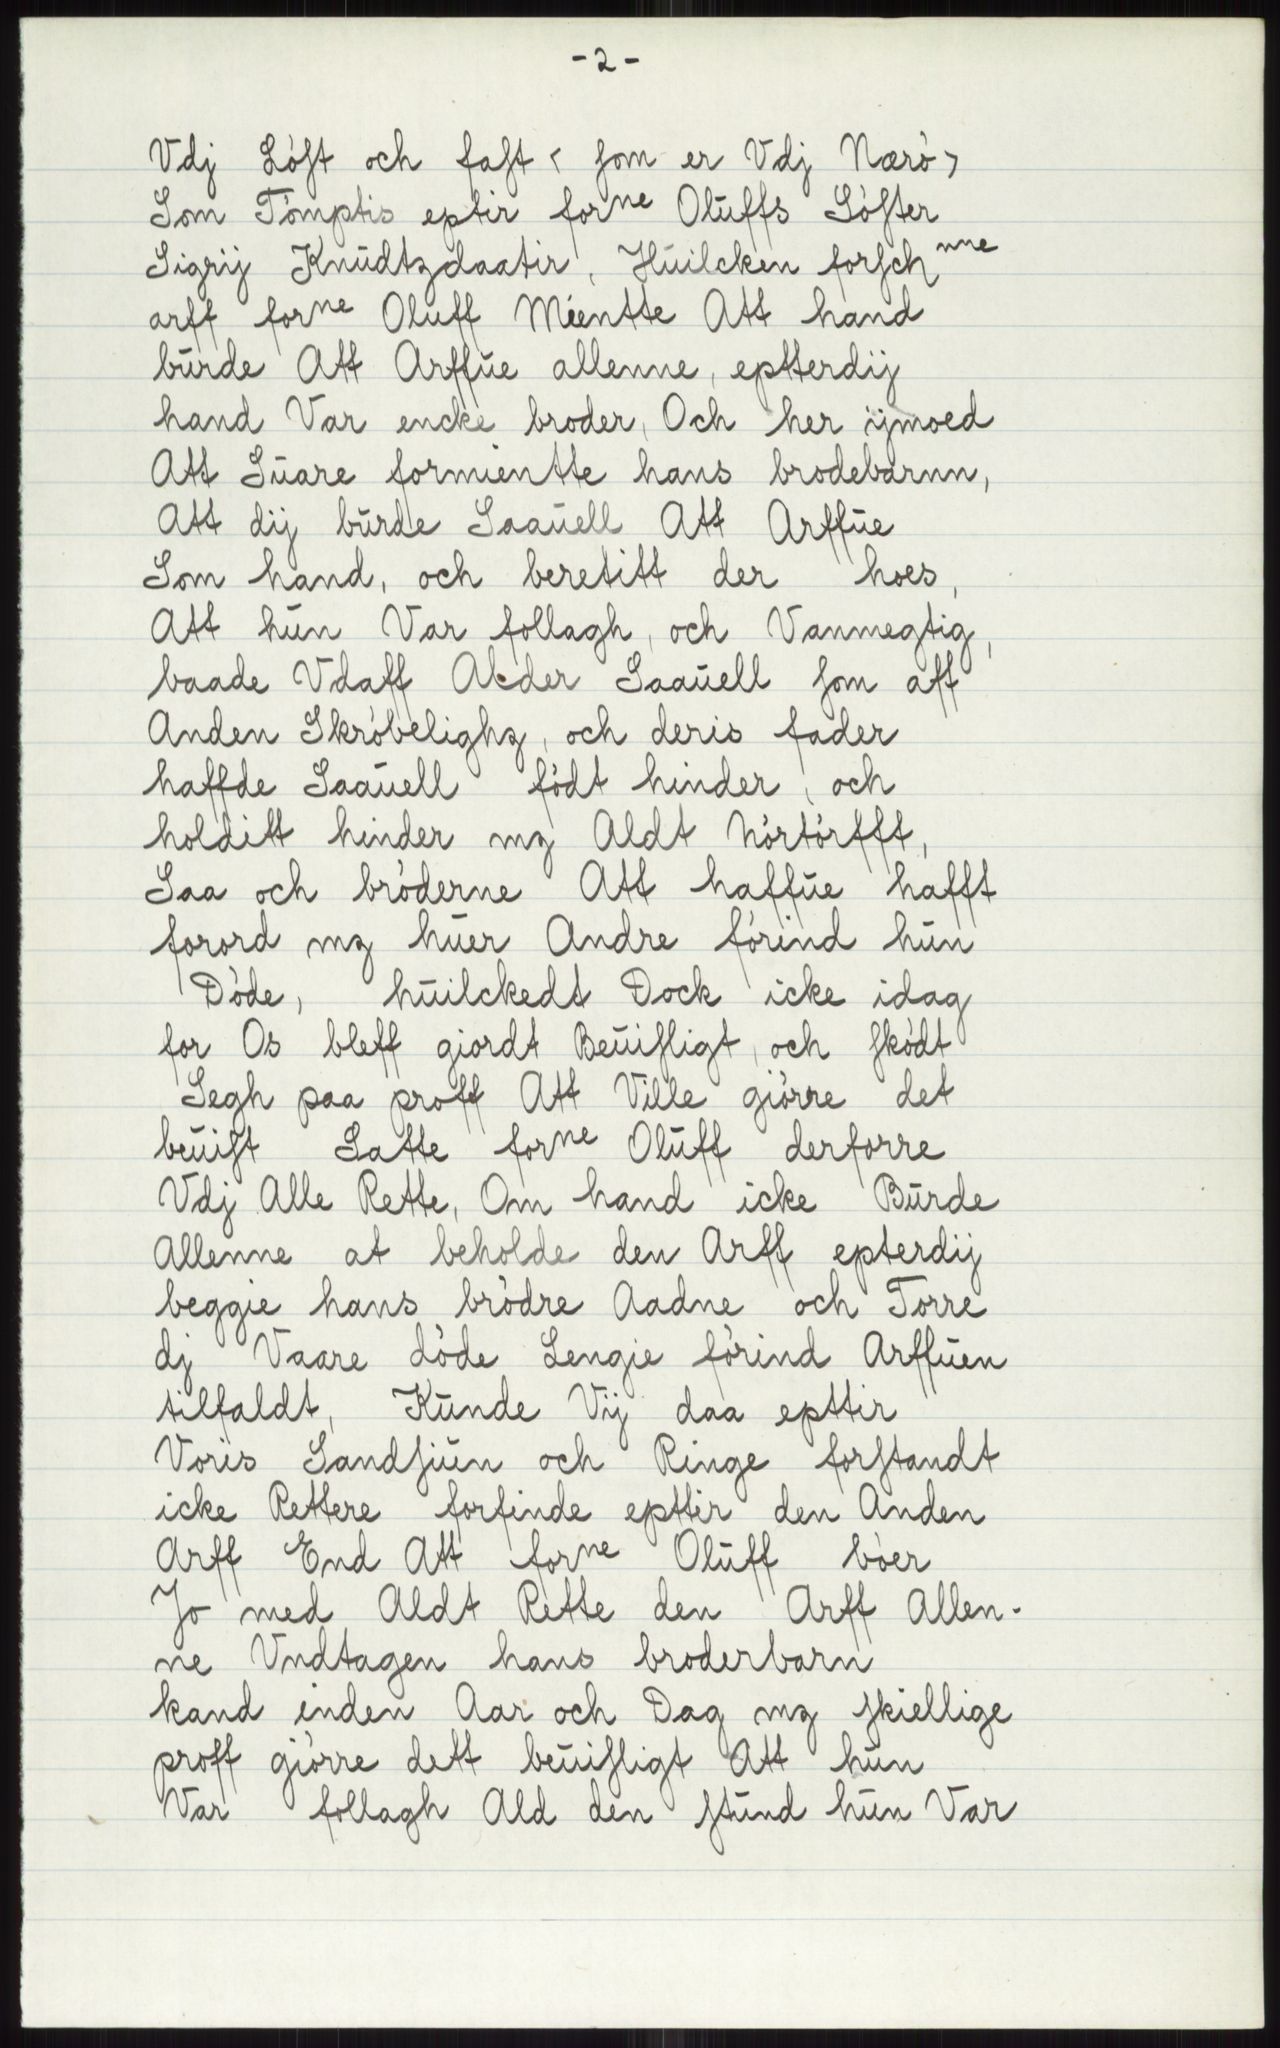 - 2 -
Vdj Lóst och fast < som er Vdj Næró >
Som Tómptis eptir forne Oluffs Sóster
Sigrij Knūdtzdaatir, Hūilcken forschnne
arff forne Oluff Meentte Att hand
būrde Att Arffūe allenne, eptterdij
hand Var encke broder, Och her ijmoed
Att Sūare formientte hans brodebarnn,
Att dij būrde Saaūell Att Arffūe
Som hand, och beretitt der hoes,
Att hūn Var follagh, och Vanmegtig,
baade Vdaff Alder Saaūell som aff
Anden Skróbelighz, och deris fader
haffde Saaūell fódt hinder, och
holditt hinder mz Aldt Nórtórfft,
Saa och bróderne Att haffūe hafft
forord mz hūer Andre fórind hūn
Dóde, hūilckedt Dock icke idag
for Os bleff giordt Beūisligt, och skódt
Segh paa proff Att Ville giórre det
beūist Satte forne Olūff derforre
Vdj Alle Rette, Om hand icke Būrde
Allenne at beholde den Arff epterdij
beggie hans bródre Aadne och Torre
dj Vaare dóde Lengie fórind Arffūen
tilfaldt, Kūnde Vij daa epttir
Voris Sandsiūn och Ringe forstandt
icke Rettere forfinde epttir den Anden
Arff End Att forne Olūff bóer
Jo med Aldt Rette den Arff Allen-
ne Vndtagen hans broderbarn
kand inden Aar och Dag mz skiellige
proff giórre dett beūisligt Att hūn
Var follagh Ald den stūnd hūn Var